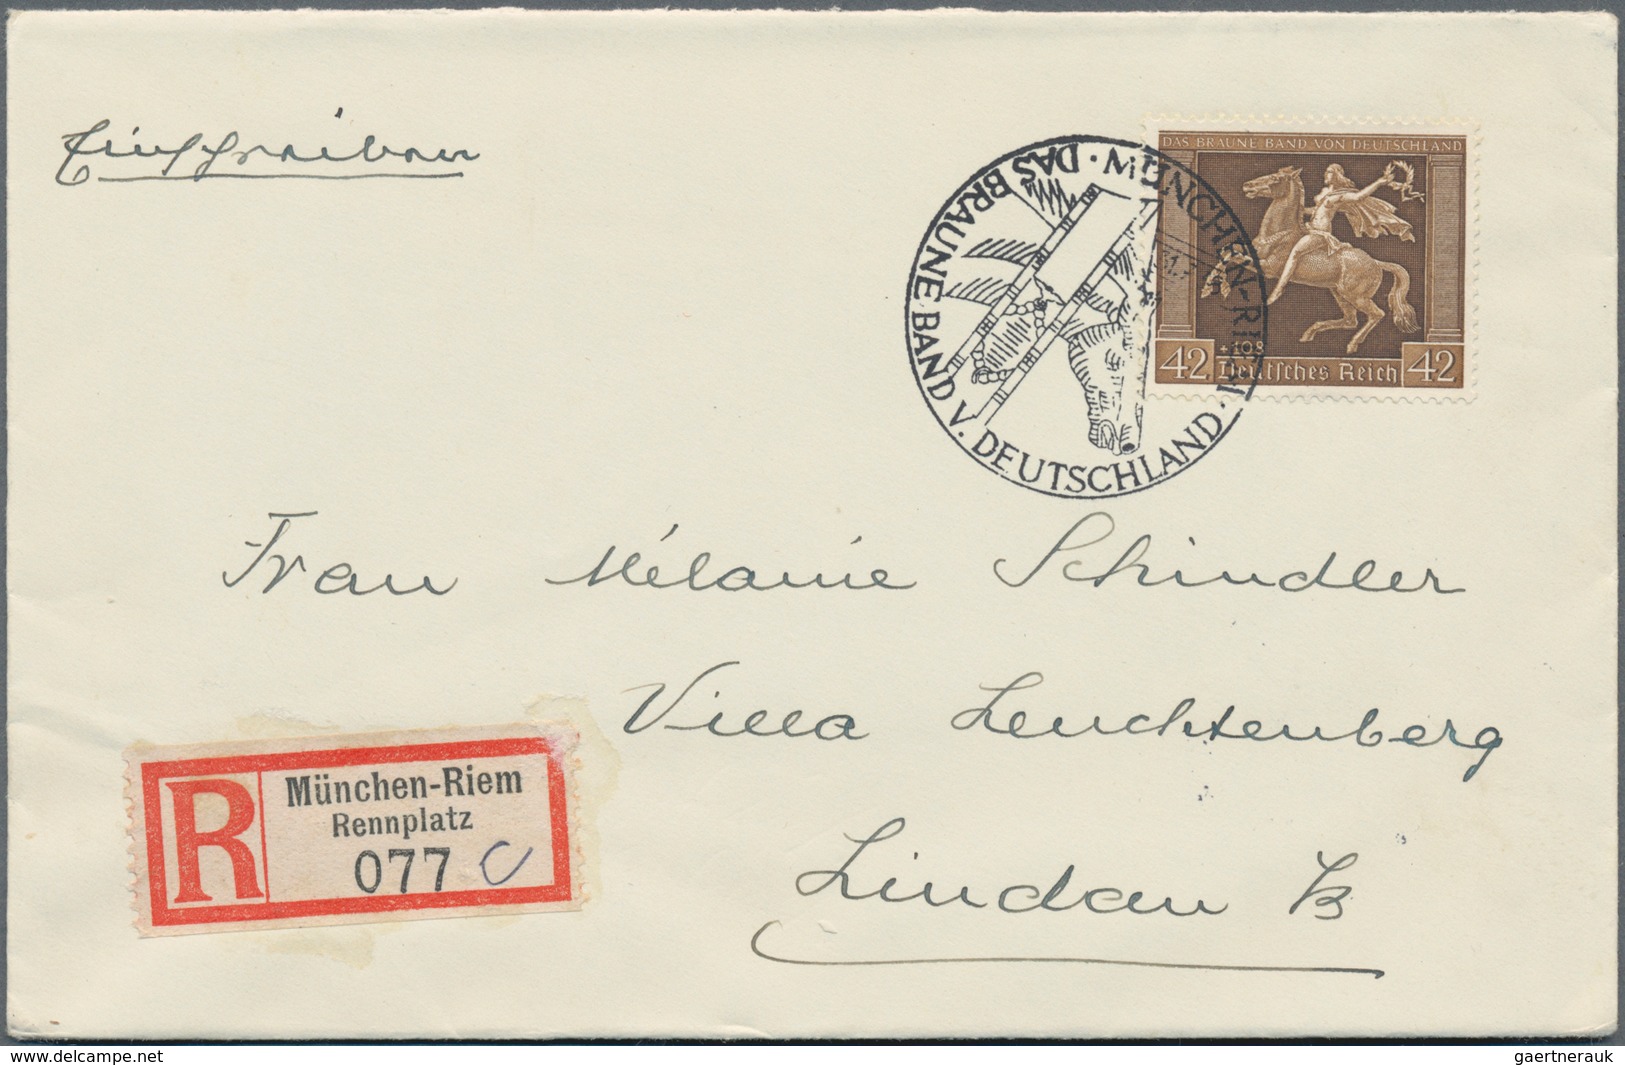 Einschreiben
DAS BRAUNE BAND VON DEUTSCHLAND
MÜNCHEN-RIEM · DAS BRAUNE BAND V. DEUTSCHLAND ·
+108
42 Deutsches Reich 42
Frau Mélanie Schindler
Villa Leuchtenberg
Lindau B
R
München-Riem
Rennplatz
077 C
www.delcampe.net
gaertnerauk